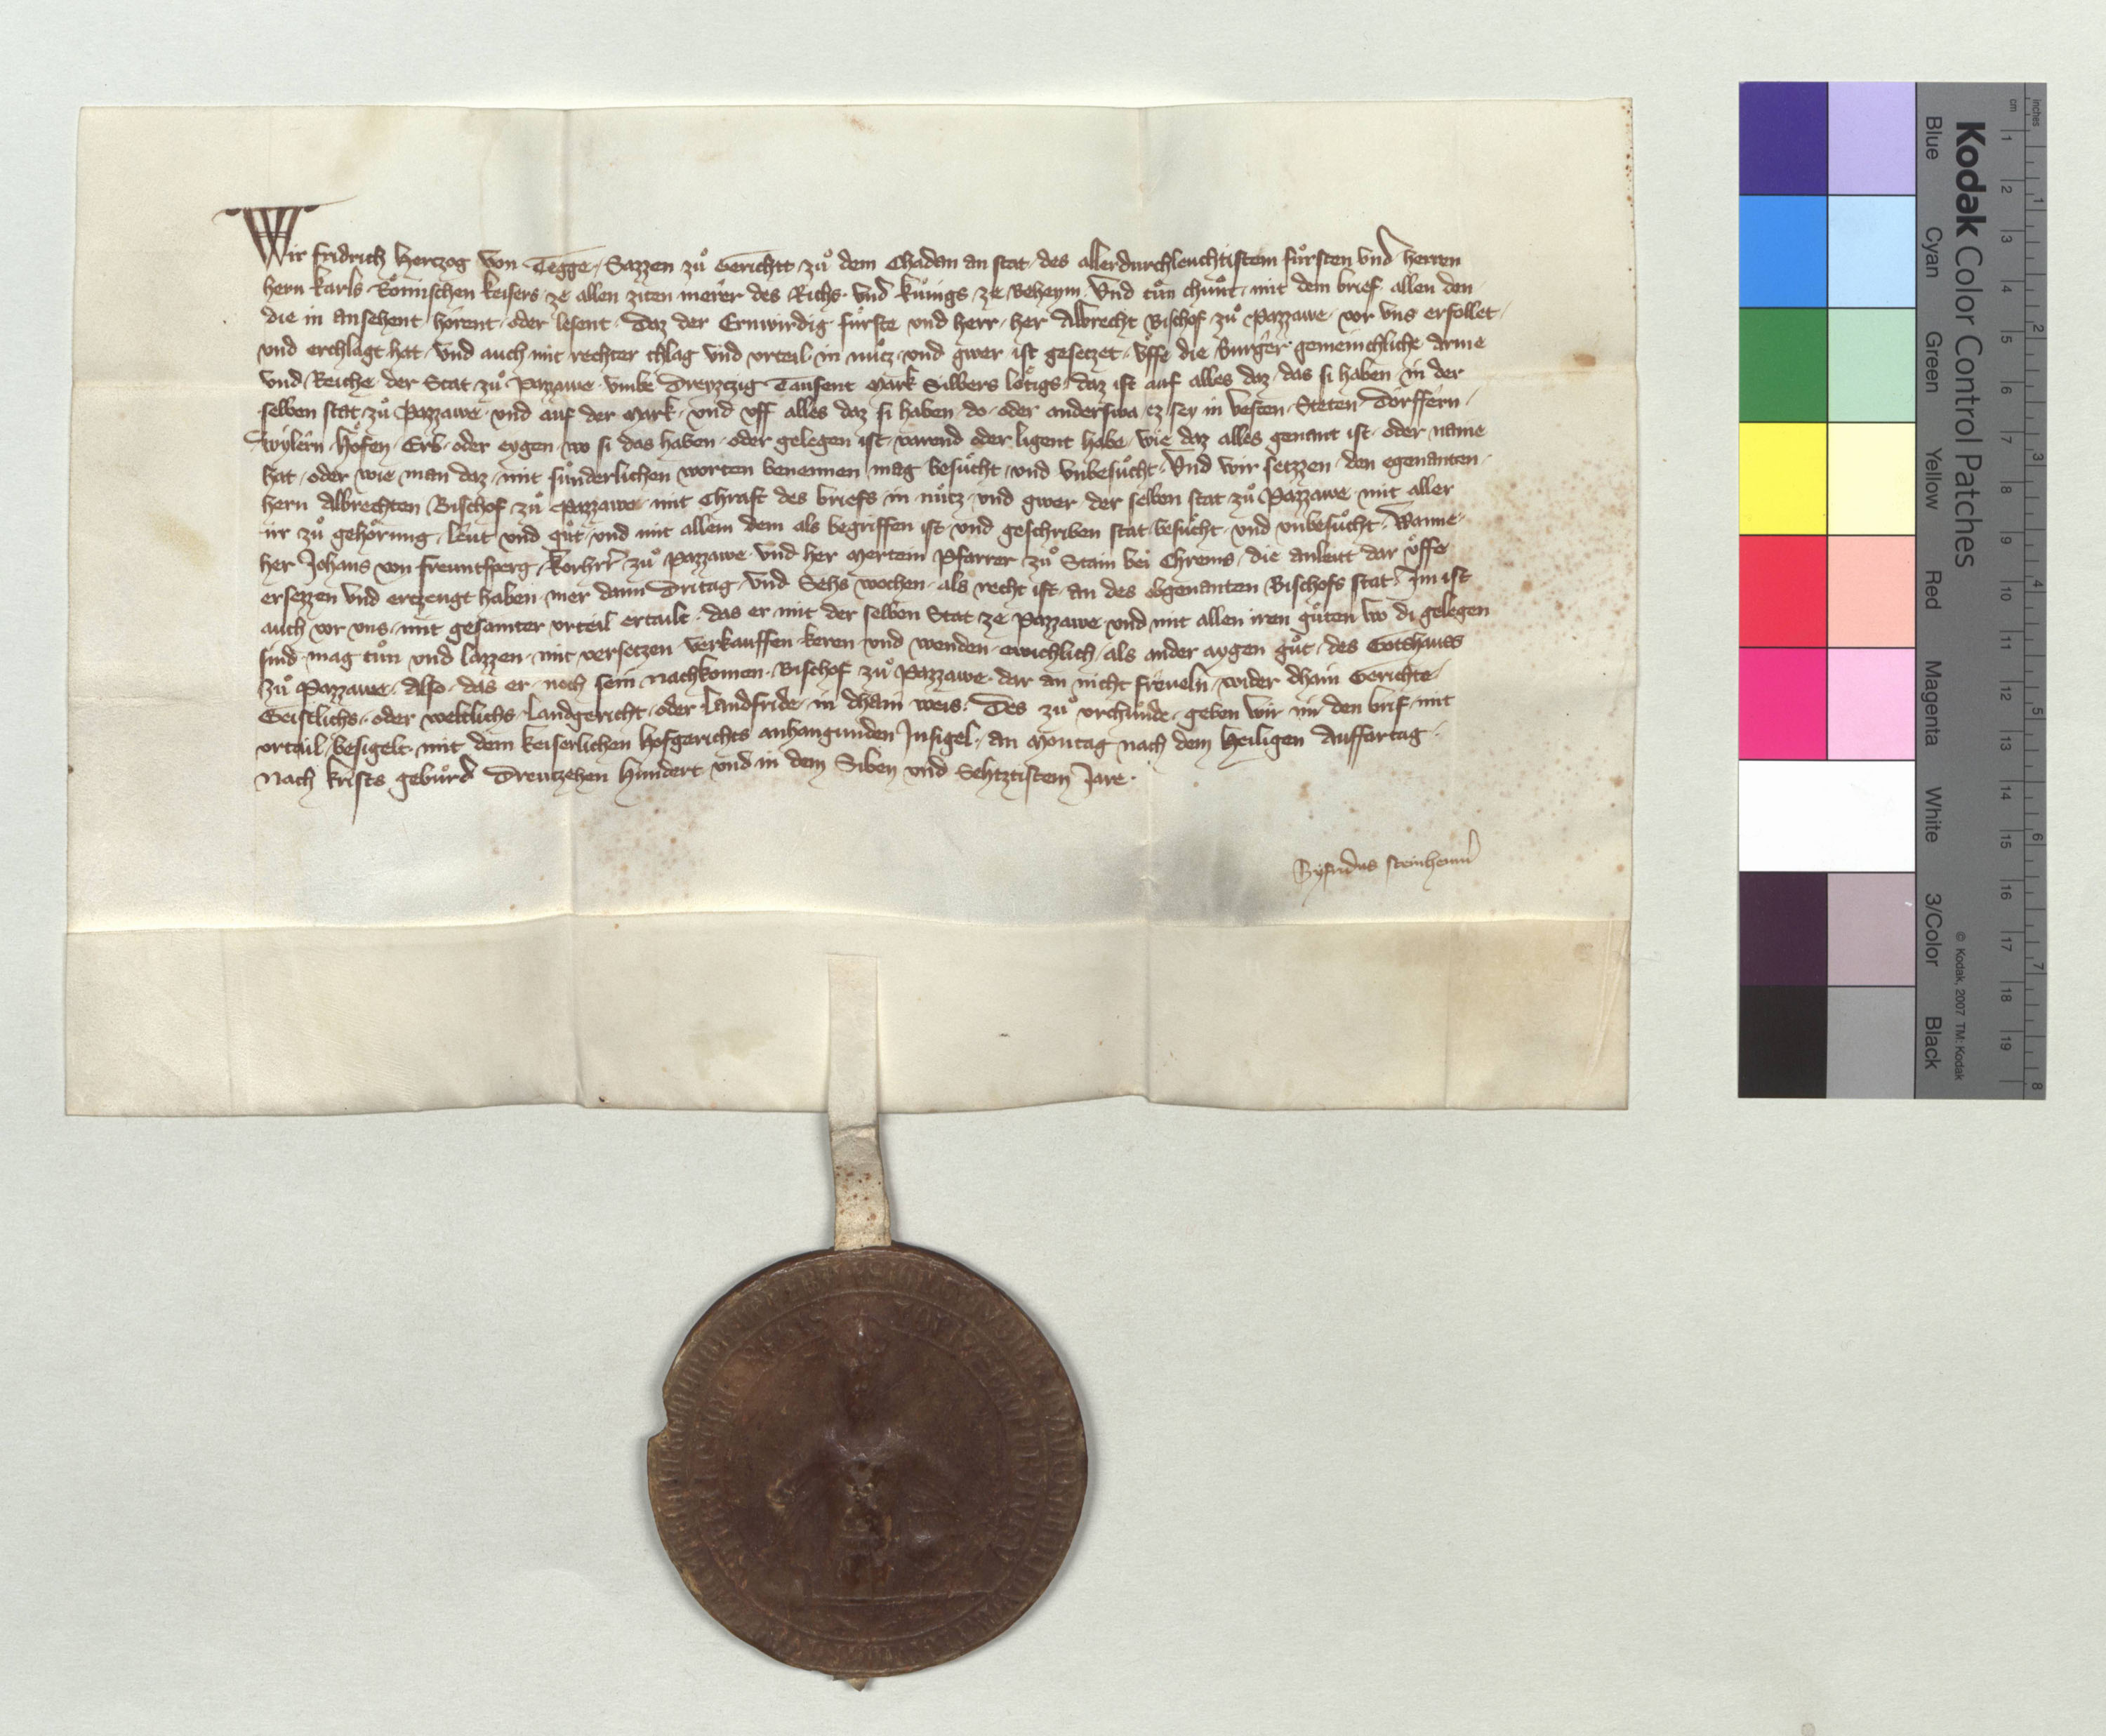 Wir fridrich Hertzog von Tegge, Sazzen zuͦ Gerichtt zuͦ dem Chadan an stat des allerdurchleuchtistem fuͤrsten vnd herren
hern karls Roͤmischen keisers ze allen ziten merer des Richs vnd kuͤnigs ze Beheym. Vnd tuͦn chuͦnt mit dem brief allen den
die in ansehent horent oder lesent. Daz der Ernwirdig fuͤrste vnd herr her Albrecht Bischof zuͦ Pazzawe vor vns erfollet
vnd erchlagt hat vnd auch mit rechter chlag vnd vrteil in nuͤtz vnd gwer ist gesetzet vͦffe die Burger gemeinchliche Arme
vnd Reiche der Stat zuͦ Pazzawe vmbe Dreyztzig Tausent Mark Silbers loͤtigs daz ist auf alles daz das si haben in der
selben stat zuͦ Pazzawe vnd auf der Mark vnd vff alles daz si haben do oder anderswa ez sey in Vesten Steten Dorffern
Wylern Hoͤfen Erb oder eygen wo si das haben oder gelegen ist varend oder ligent habe wie daz alles genant ist oder name
hat oder wie man daz mit suͤnderlichen worten benennen mag besuͦcht vnd vnbesuͦcht. Vnd wir setzzen den egenanten
hern Albrechten Bischof zuͦ Pazzawe mit Chraft des briefs in nuͤtz vnd gwer der selben stat zuͦ Pazzawe mit aller
irr zuͦ gehoͤrung leut vnd guͦt vnd mit allem dem als begriffen ist vnd geschriben stat besuͦcht vnd vnbesuͦcht. Wanne
her Johans von freuntsperg korhrr zuͦ Pazzawe vnd her Mertein Pfarrer zuͦ Stain bei Chrems die anleitt dar vͦffe
ersezzen vnd ertzeugt haben mer dann Dritag vnd Sehs wochen als recht ist an des obgenanten Bischofs stat. Im ist
auch vor vns mit gesamter vrteil ertailt das er mit der selben Stat ze Pazzawe vnd mit allen iren guͤten wo di gelegen
sind mag tuͦn vnd lazzen mit versetzen verkauffen keren vnd wenden ewichlich als ander aygen guͦt des Gotshauss
zuͦ Pazzawe. Also das er noch sein nachkomen Bischof zuͦ Pazzawe dar an nicht freueln wider dhain Gerichte
Geistlichs oder weltlichs Landgericht oder Landfride in dhain weis. Des zuͦ vrchuͤnde geben wir im den brif mit
vrteil besigelt mit dem keiserlichen hofgerichts anhangunden Insigel. an Montag nach dem Heiligen Auffartag
Nach krists gebuͤrd Dreutzehen Hundert vnd in dem Siben vnd Sehtztistem Jare.
Syfridus steinheimer
Kodak Color Control Patches
Blue Cyan Green Yellow Red Magenta White 3/Color Black
© Kodak, 2007 TM: Kodak
inches 1 2 3 4 5 6 7 8
cm 1 2 3 4 5 6 7 8 9 10 11 12 13 14 15 16 17 18 19